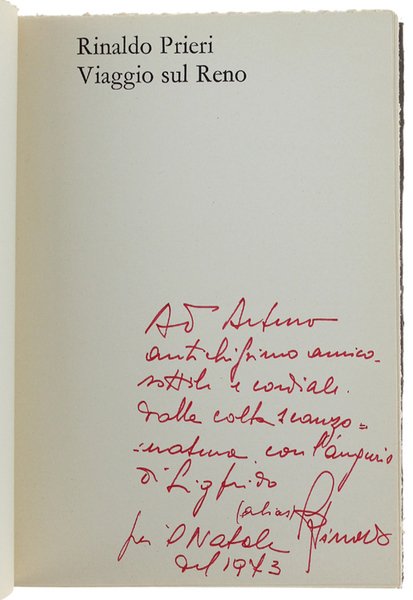 Rinaldo Prieri
Viaggio sul Reno
Ad Arturo
antichissimo amico
sottile e cordiale
dalla colta scanzo=
=natura con l'augurio
di Sigfrido
(alias) Rinaldo
per il Natale
del 1973